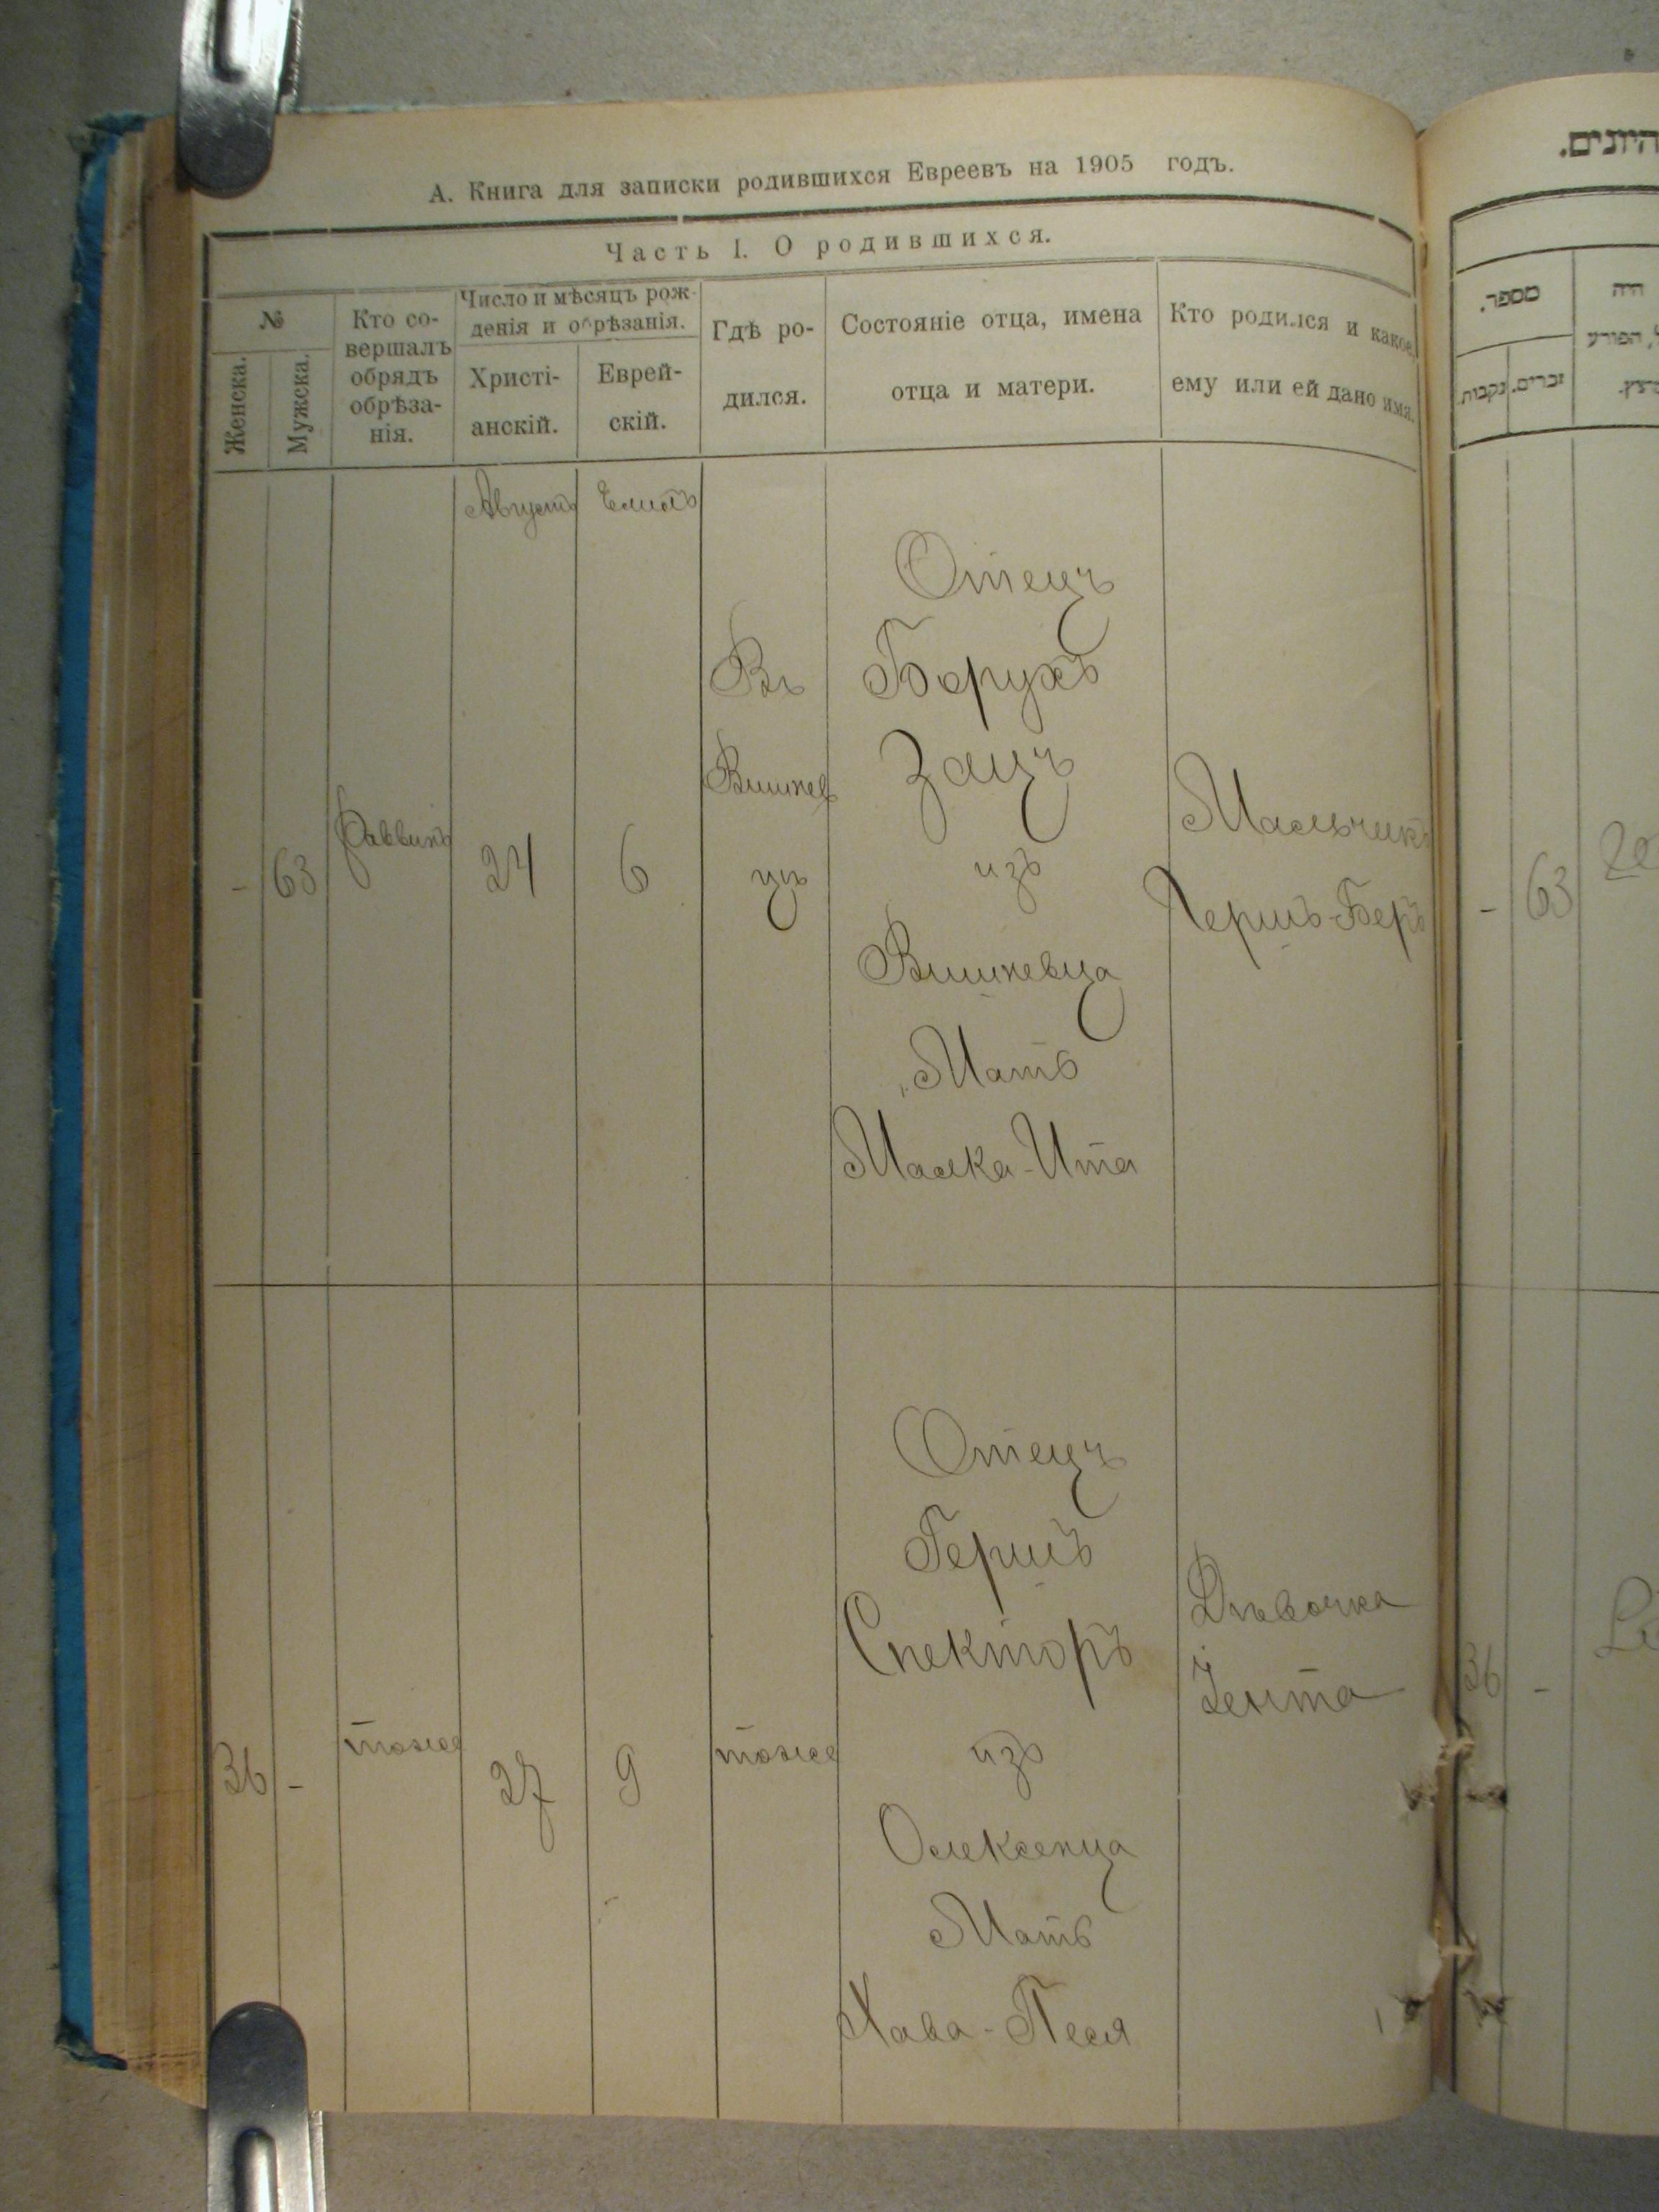 А. Книга для записки родившихся Евреевъ на 1905 годъ.
Часть I. О родившихся.
№
Женска.
Мужска.
Кто со-
вершалъ
обрядъ
обрѣза-
нія.
Число и мѣсяцъ рож-
денія и обрѣзанія.
Христі-
анскій.
Еврей-
скій.
Гдѣ ро-
дился.
Состояніе отца, имена
отца и матери.
Кто родился и какое
ему или ей дано имя.
Августъ
-
63
Раввинъ
24
6
Въ
Вишнев
цѣ
Отецъ
Борухъ
Зацъ
изъ
Вишневца
Мать
Малка-Ита
Мальчикъ
Гершъ-Беръ
36
-
тоже
27
9
тоже
Отецъ
Гершъ
Спекторъ
изъ
Олексенца
Мать
Хава-Песя
Дѣвочка
מספר.
זכרים.
נקבות.
היה
הפורע
-
63
36
-